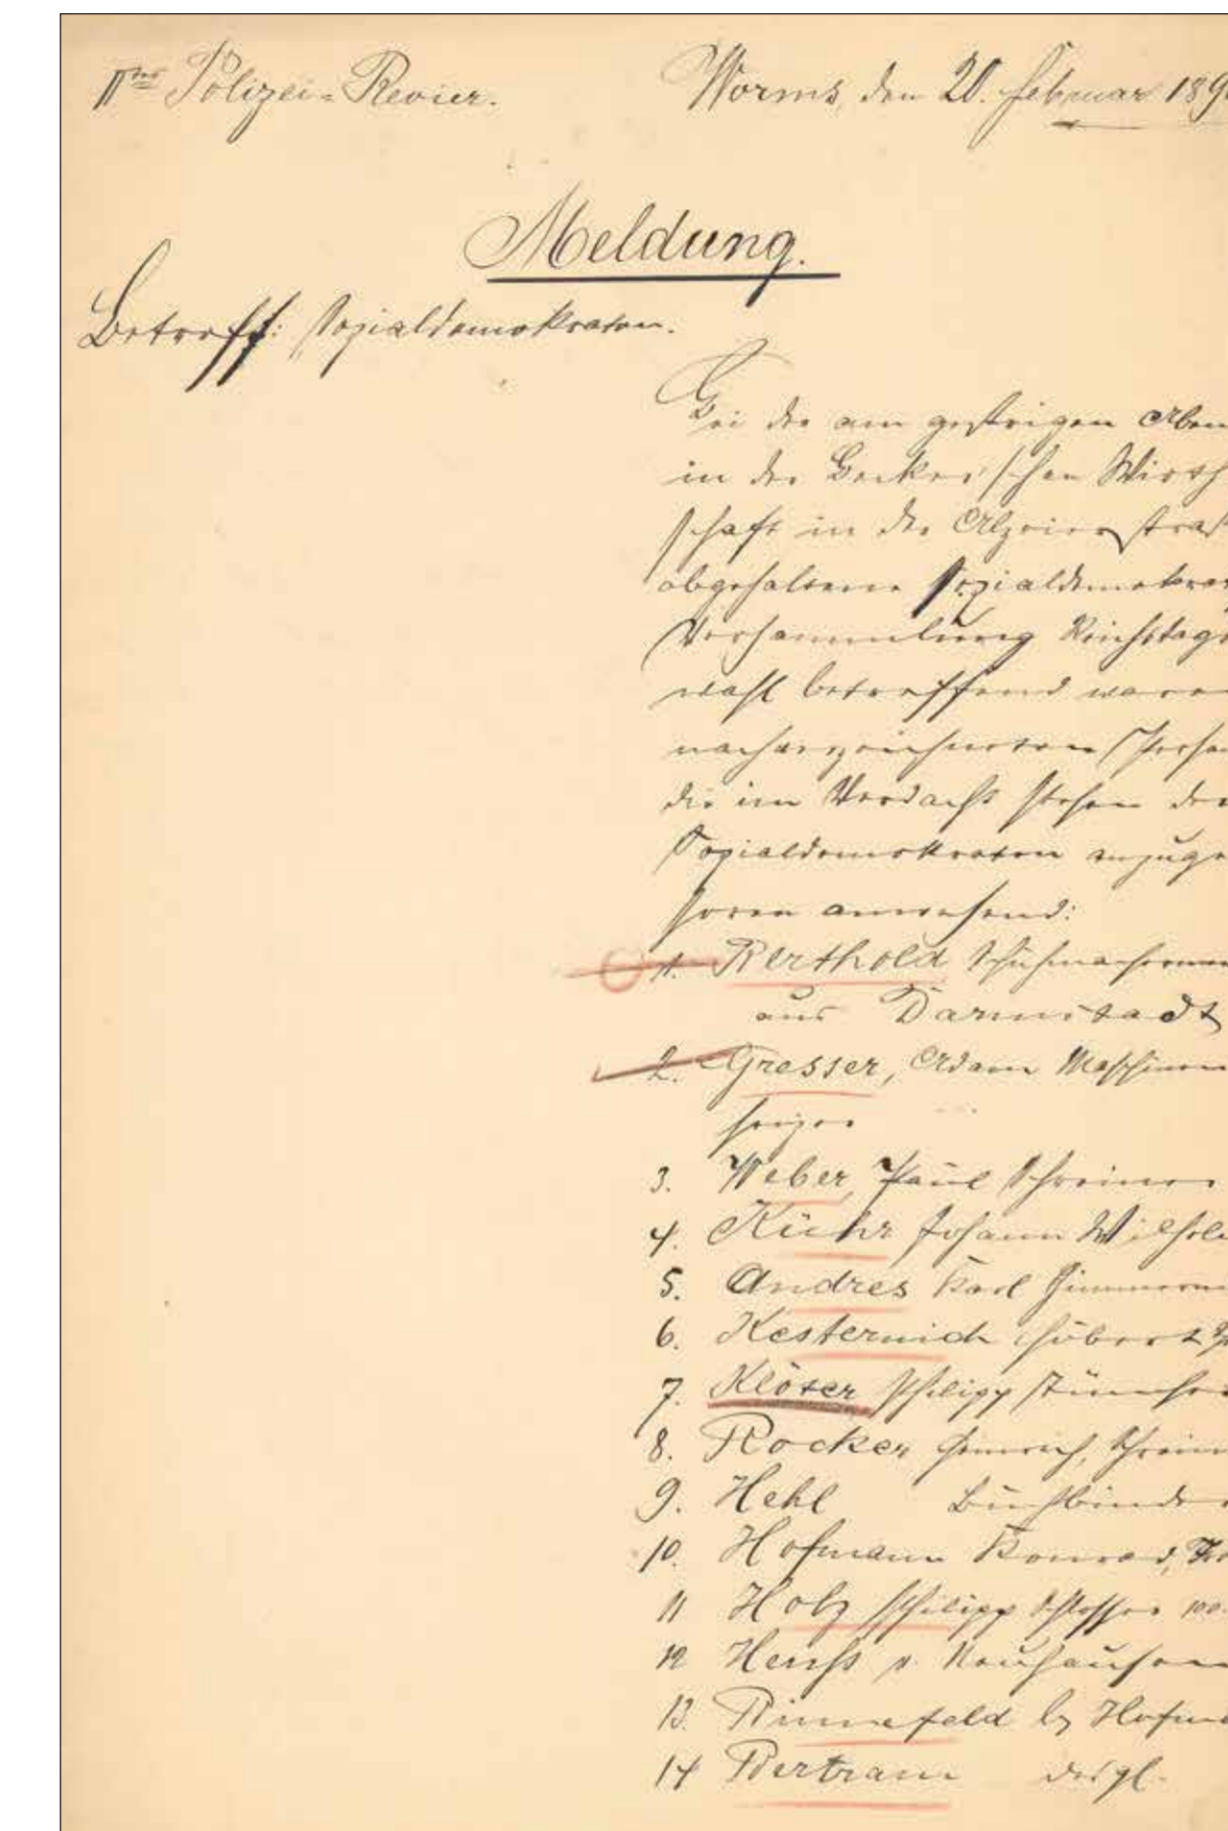 IItes Polizei-Revier.
Worms, den 20. Februar 189
Meldung.
Betreff: Sozialdemokraten.
Bei der am gestrigen Aben
in der Becker'schen Wirth
schaft in der Alzeierstraß
abgehaltene sozialdemokrat
Versammlung Reichstags
wahl betreffend waren
nachverzeichneten Person
die im Verdacht stehen den
Sozialdemokraten anzuge
hören anwesend:
1. Berthold Schuhmacher
aus Darmstadt
2. Gresser, Adam Maschinen
heizer
3. Weber, Paul Schreiner
4. Kühr Johann Wilhel
5. Andres Karl Zimmerm
6. Kesternich Hubert
7. Klöser Philipp Tüncher
8. Rocker Heinrich, Schrein
9. Hehl Buchbinder
10. Hofmann Konrad,
11 Holz Philipp Schlosser
12 v. Neuhausen
13. Rinnefeld b/ Hofm
14 Bertram desgl.